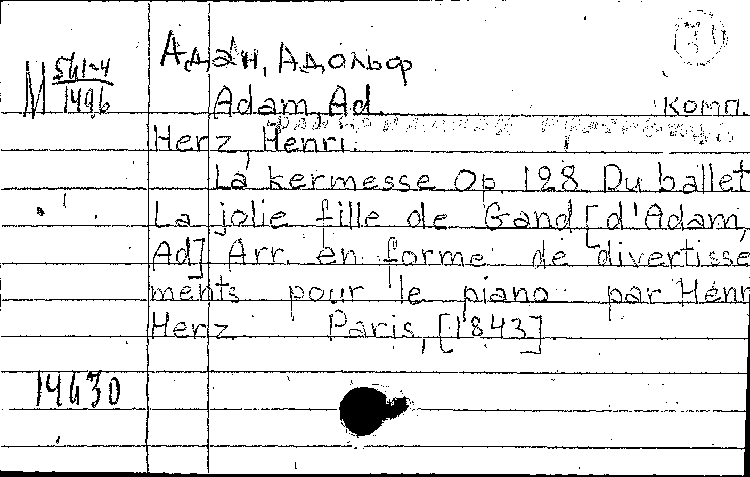 Адан, Адольф
М 561-4
1496
Adam Ad. комп.
Herz, Henri.
La kermesse Op. 128 Du ballet
La jolie fille de Gand [d'Adam,
Ad] Arr. en forme de divertisse
ments pour le piano par Henr
Herz Paris, [1843]
14630